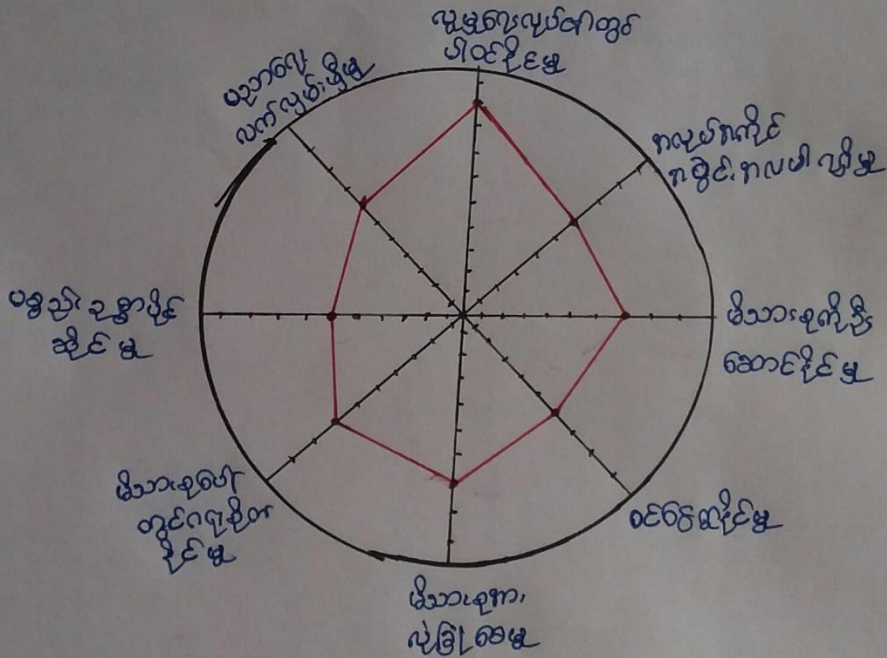 လူမှုရေးလုပ်ငန်းတွင်
ပါဝင်နိုင်မှု
အလုပ်အကိုင်
အခွင့်အလမ်း ရရှိမှု
မိသားစုကိုဦး
ဆောင်နိုင်မှု
ဝင်ငွေရနိုင်မှု
မိသားစုအား
လုံခြုံစေမှု
မိသားစုပေါ်
တွင်ဂရုစိုက်
နိုင်မှု
ပစ္စည်းဥစ္စာပိုင်
ဆိုင်မှု
ပညာရေး
လက်လှမ်းမှီမှု